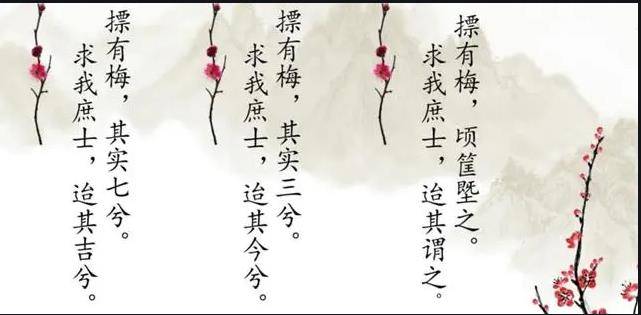 摽有梅，其实七兮。
求我庶士，迨其吉兮。
摽有梅，其实三兮。
求我庶士，迨其今兮。
摽有梅，顷筐塈之。
求我庶士，迨其谓之。